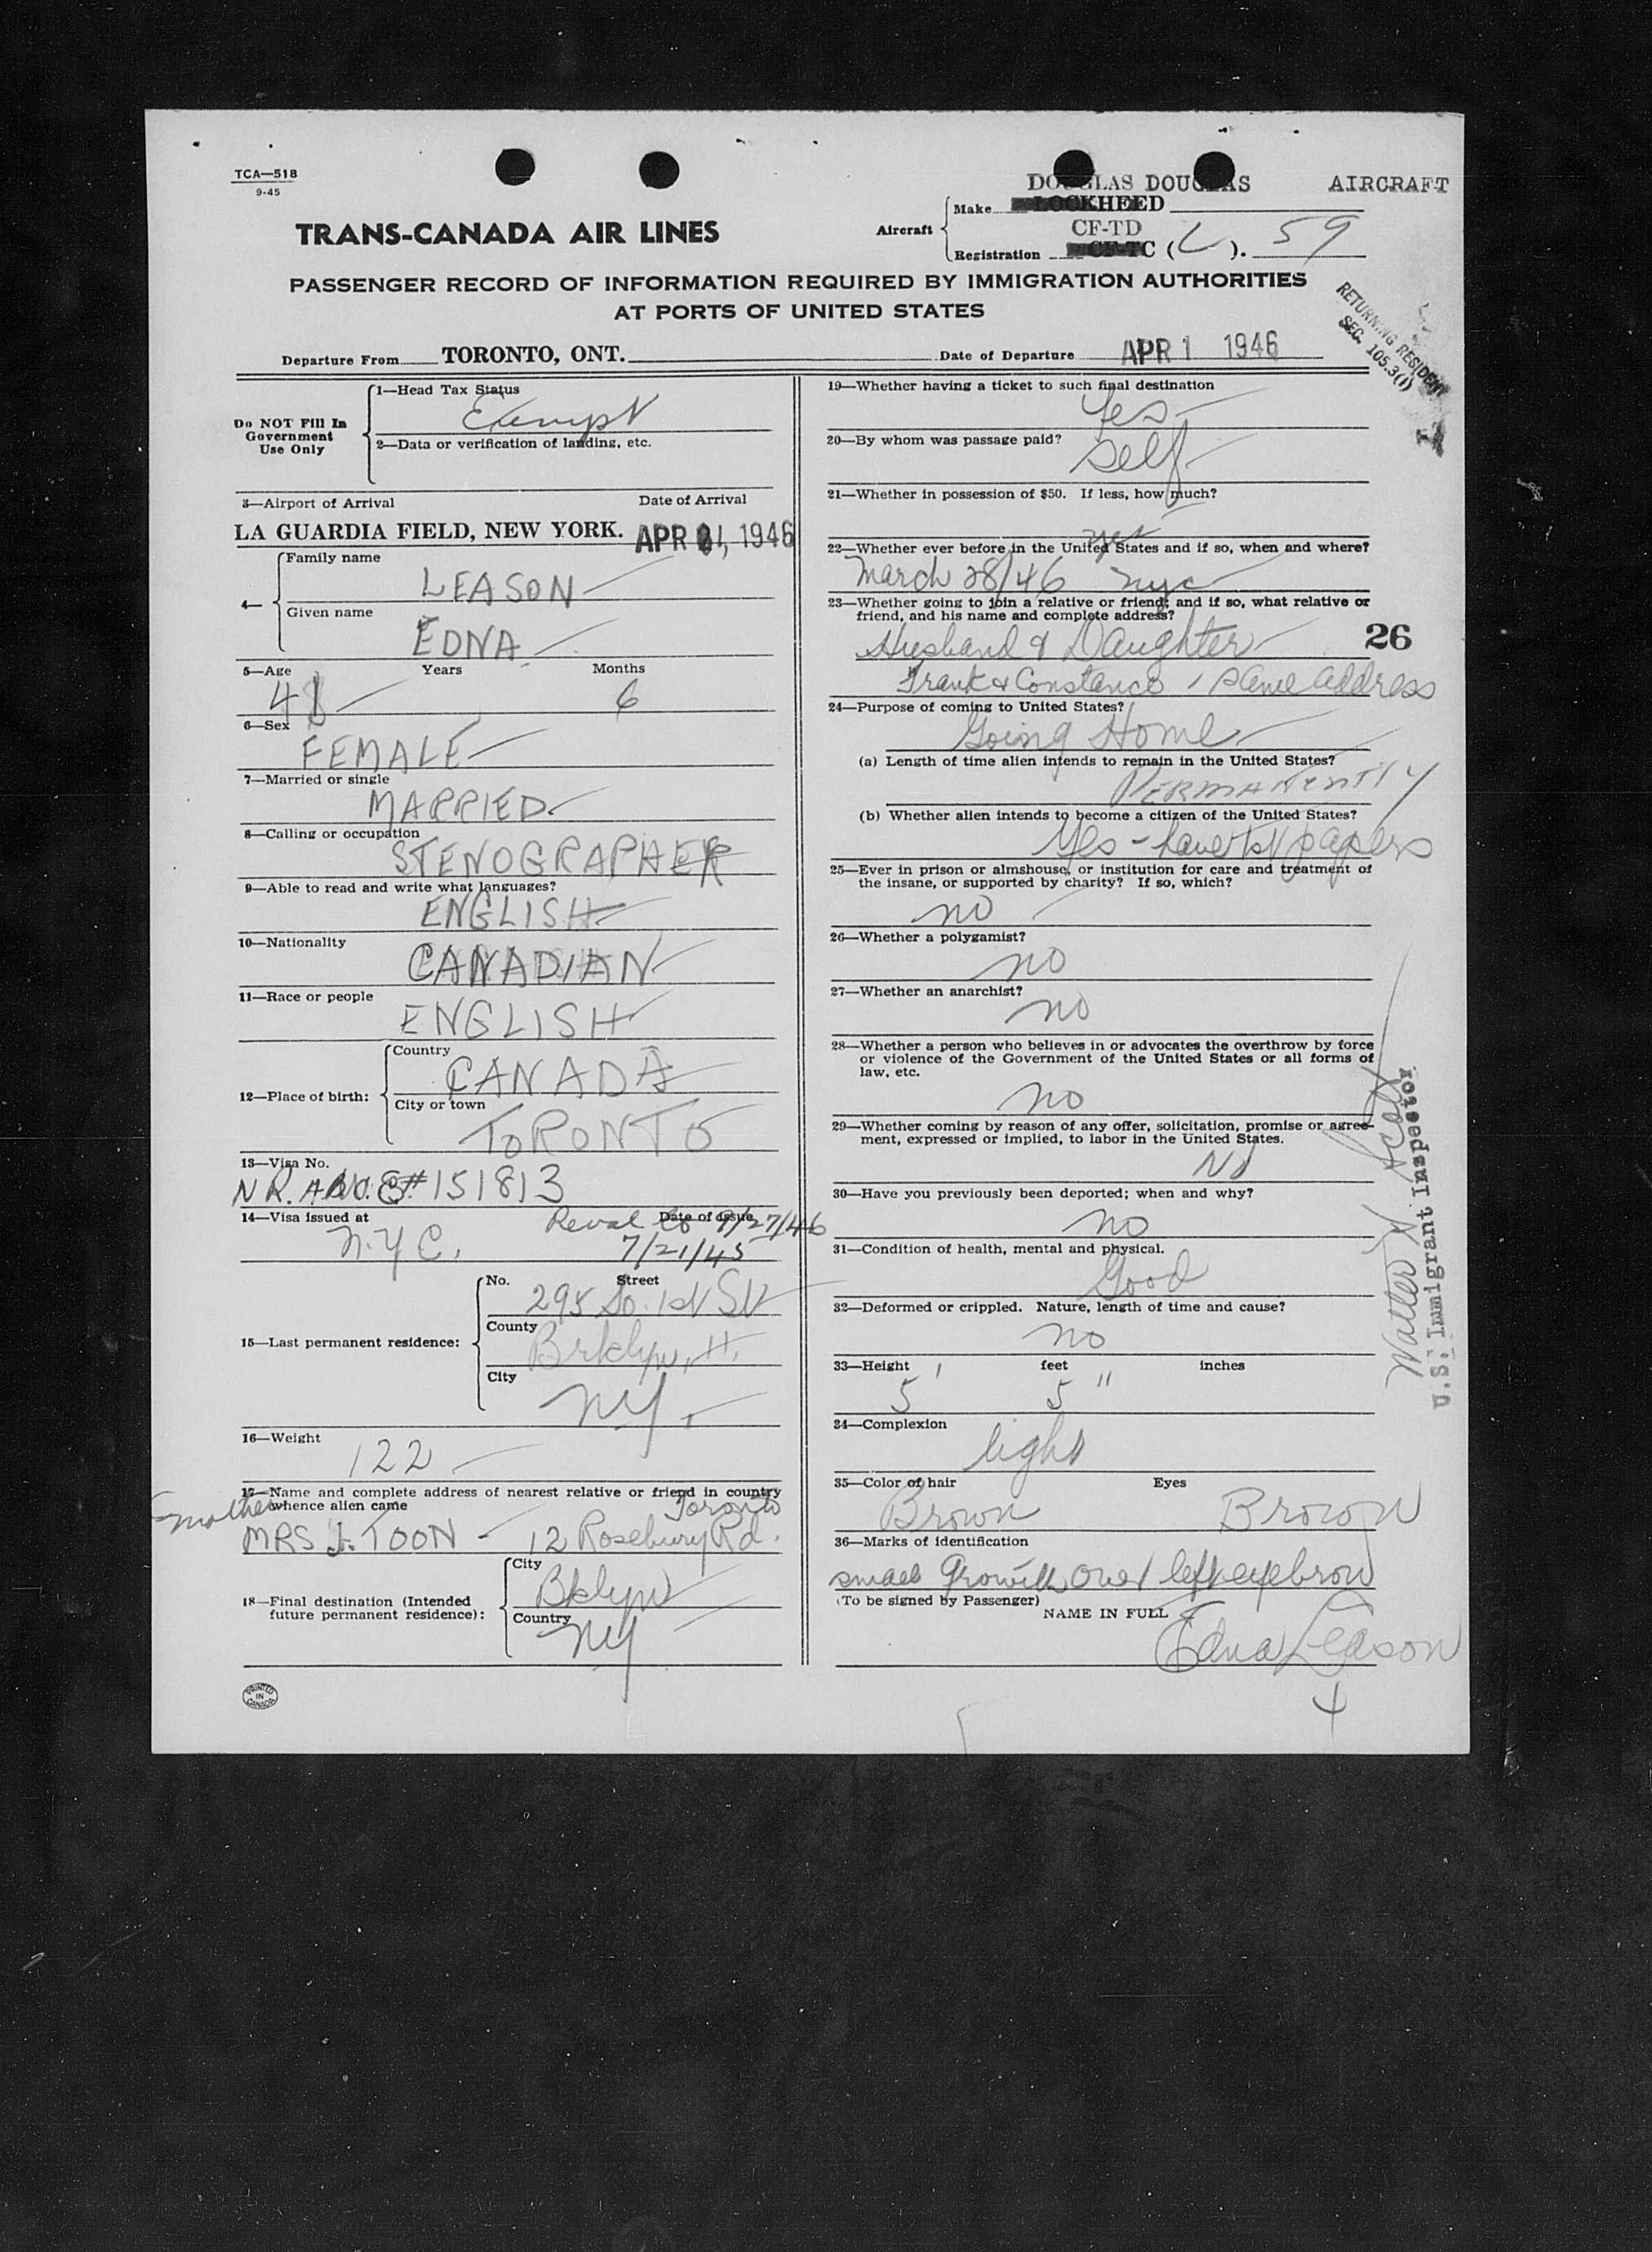 TCA—518
9-45
DOUGLAS DOUGLAS AIRCRAFT
TRANS-CANADA AIR LINES
Aircraft
Make LOCKHEED
CF-TD
Registration CF-TC (L). 59
PASSENGER RECORD OF INFORMATION REQUIRED BY IMMIGRATION AUTHORITIES
AT PORTS OF UNITED STATES
RETURNING RESIDENT
SEC. 105.3(1)
Departure From TORONTO, ONT. Date of Departure APR 1 1946
Do NOT Fill In
Government
Use Only
1—Head Tax Status
Exempt
2—Data or verification of landing, etc.
3—Airport of Arrival Date of Arrival
LA GUARDIA FIELD, NEW YORK. APR 1, 1946
4—
Family name
LEASON
Given name
EDNA
5—Age Years Months
6
6—Sex
FEMALE
7—Married or single
MARRIED
8—Calling or occupation
STENOGRAPHER
9—Able to read and write what languages?
ENGLISH
10—Nationality
CANADIAN
11—Race or people
ENGLISH
12—Place of birth:
Country
CANADA
City or town
TORONTO
13—Visa No.
N R. #151813
14—Visa issued at Date of issue
N.Y.C. to 9/27/46
7/21/45
15—Last permanent residence:
No. Street
295 So. 1st St
County
Brklyn,
City
NY
16—Weight
122
17—Name and complete address of nearest relative or friend in country
whence alien came
mother Toronto
MRS J. TOON - 12 Rosebury Rd.
18—Final destination (Intended
future permanent residence):
City
Bklyn
Country
NY
PRINTED
IN
CANADA
19—Whether having a ticket to such final destination
Yes
20—By whom was passage paid?
Self
21—Whether in possession of $50. If less, how much?
yes
22—Whether ever before in the United States and if so, when and where?
March 28/46 nyc
23—Whether going to join a relative or friend; and if so, what relative or
friend, and his name and complete address?
Husband & Daughter 26
Frank & Constance, same address
24—Purpose of coming to United States?
Going Home
(a) Length of time alien intends to remain in the United States?
PERMANENTLY
(b) Whether alien intends to become a citizen of the United States?
Yes - have 1st papers
25—Ever in prison or almshouse, or institution for care and treatment of
the insane, or supported by charity? If so, which?
no
26—Whether a polygamist?
no
27—Whether an anarchist?
no
28—Whether a person who believes in or advocates the overthrow by force
or violence of the Government of the United States or all forms of
law, etc.
no
29—Whether coming by reason of any offer, solicitation, promise or agree-
ment, expressed or implied, to labor in the United States.
No
30—Have you previously been deported; when and why?
no
31—Condition of health, mental and physical.
Good
32—Deformed or crippled. Nature, length of time and cause?
no
33—Height feet inches
5' 5"
34—Complexion
light
35—Color of hair Eyes
Brown Brown
36—Marks of identification
small growth over left eyebrow
(To be signed by Passenger)
NAME IN FULL
Edna Leason
4
Walter
U.S. Immigrant Inspector